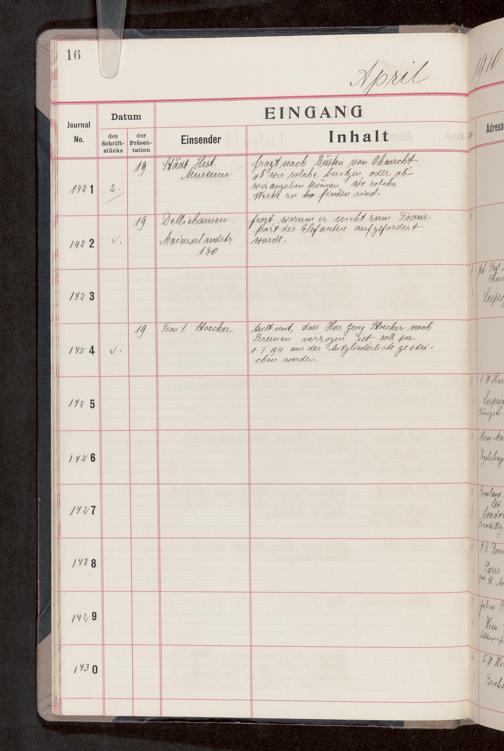 16
April
1910
EINGANG
Datum
Journal
No.
des
Schrift-
stücks
der
Präsen-
tation
Einsender
Inhalt
Adress
1421
2.
19
Städt. Hist.
Museum
fragt nach Büsten von Ohmacht
ob wir solche besitzen, oder ob
wir angeben können, wo solche
Werke zu finden sind.
1422
19
Mainzerlandstr
130
fragt, warum er nicht zum Trans-
port des Elefanten aufgefordert
wurde.
1423
1424
19
Frau Stoecker
teilt mit, dass Herr Georg Stoecker nach
Bremen verzogen ist soll per
1 I 1911 aus der Mitgliederliste gestri-
chen werden.
1425
1426
1427
1428
1429
1430
Leipzig
London
Paris
Wien